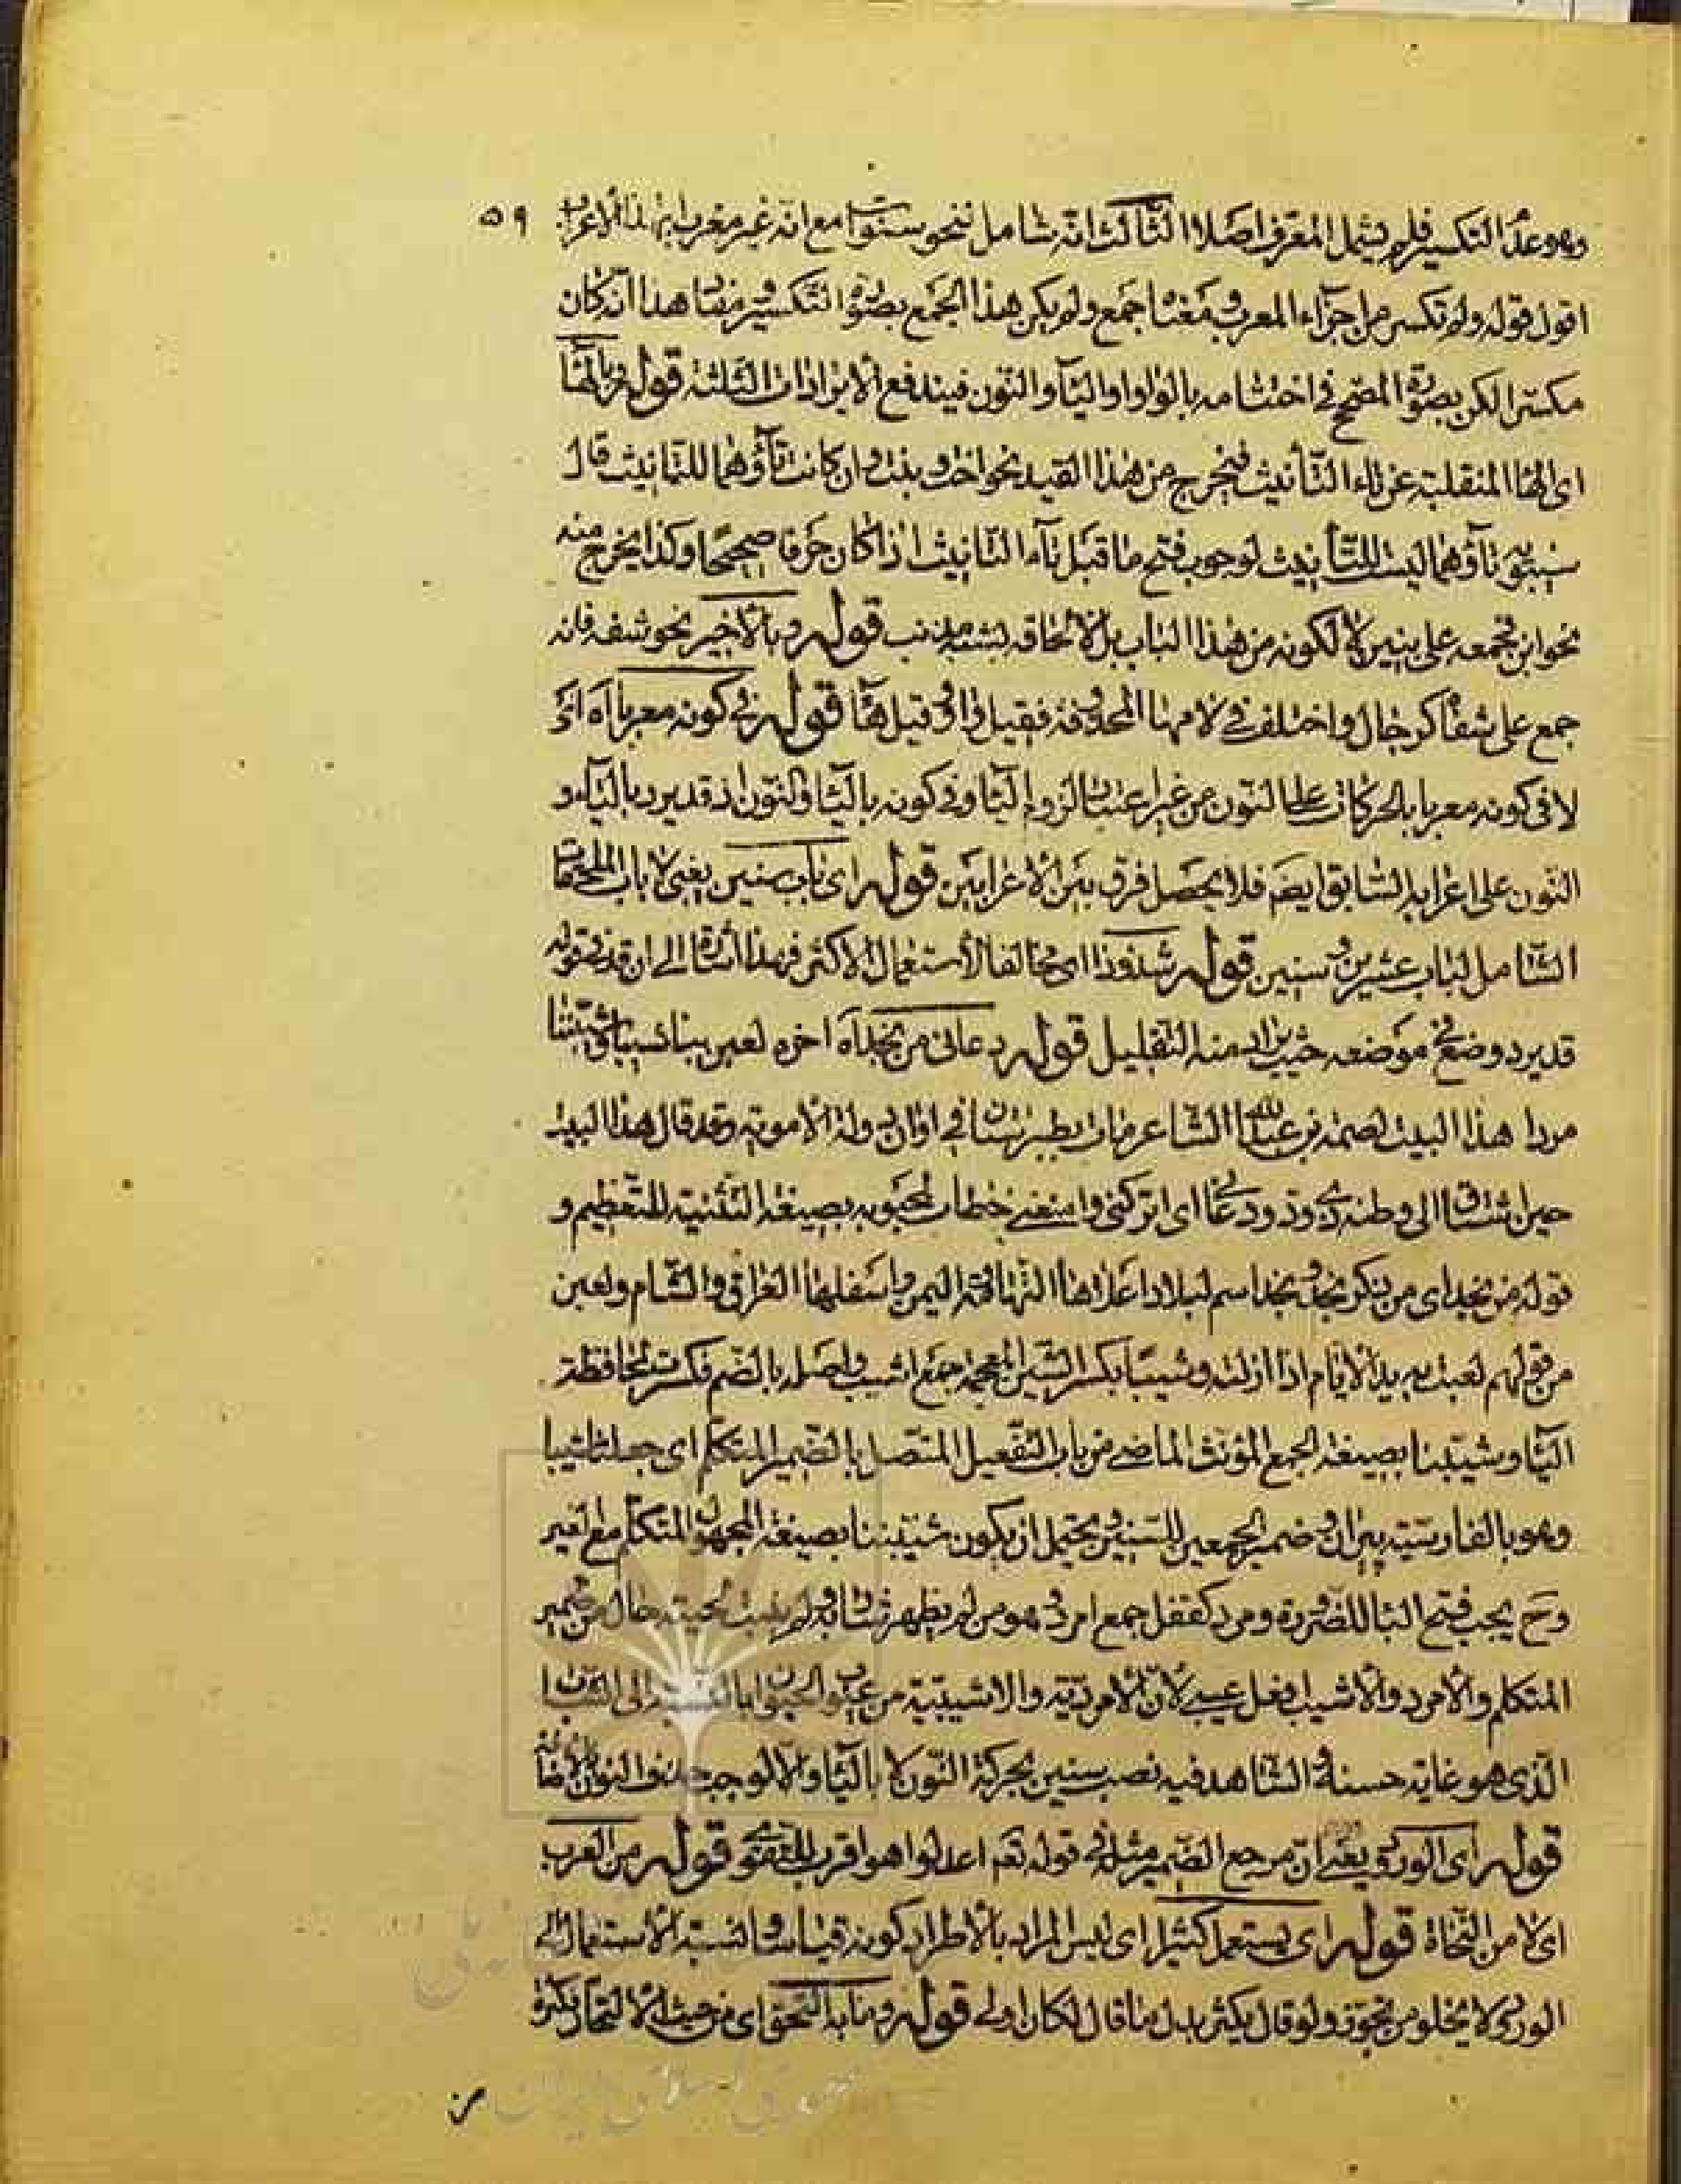 وهو عدم التكسير فلم يشمل المعرف اصلا الثالث انه شامل لنحو سنوات مع انه غير معرب بهذا الاعراب ٥٩
اقول قوله ولم تكسر من اجزاء المعرف معناه جمع ولم يكن هذا الجمع بصورة التكسير مفاد هذا انه كان
مكسرا لكن بصورة المصحح في اختتامه بالواو او الياء والنون فيندفع الايرادات الثلثة قوله وبالهاء
اى الهاء المنقلبة عن تاء التأنيث فيخرج من هذا القيد نحو اخت وبنت وان كانت تاؤهما للتانيث قال
سيبويه تاؤهما ليست للتأنيث لوجوب فتح ما قبل تاء التانيث اذا كان حرفا صحيحا وكذا يخرج منه
نحو ابن فجمعه على بنين لا لكونه من هذا الباب بل لالحاقه بشبه مذنب قوله وبالاخير نحو شفة فانه
جمع على شفاه كرجال واختلف في لامها المحذوفة فقيل واو وقيل هاء قوله في كونه معربا آه اى
لا فى كونه معربا بالحركات على النون من غير اعتبار لزوم الياء وفى كونه بالياء والنون اذ قد يرد بالياء و
النون على اعرابه السابق ايضم فلا يحصل فرق بين الاعرابين قوله اى باب سنين يعنى لا باب الملحقات
الشامل لباب عشرين وسنين قوله شذوذا اى مخالفا لاستعمال الاكثر فهذا اشارة الى ان قد في قوله
قد يرد وضع في موضعه حيث يراد منه التقليل قوله دعانى من نجد آه اخره لعبن بنا شيبا وشيبننا
مردا هذا البيت لصمة بن عبد الله الشاعر مات بطبرستان في اوان دولة الاموية وقد قال هذا البيت
حين اشتاق الى وطنه ودعا اى اتركنى واسنعنى خطاب لمحبوبه بصيغة التثنية للتعظيم و
قوله من نجد اى من ذكر نجد ونجد اسم لبلاد اعلاها التهامة اليمن واسفلها العراق والشام ولعبن
من قولهم لعبت به يد الايام اذا ازلته وشيبا بكسر الشين المعجمة جمع اشيب واصله بالضم فكسرت لمحافظة
الياء وشيبننا بصيغة الجمع المؤنث الماضى من باب التفعيل المتصل بالضمير المتكلم اى جعلننا شيبا
وهو بالفارسية پيران وضمير الجمعين للسنين ويحتمل ان يكون شيبننا بصيغة المجهول المتكلم مع الغير
وح يجب فتح الباء للضرورة ومرد كقفل جمع امرد وهو من لم يظهر شاربه ولم ينبت لحيته حال من ضمير
المتكلم والامرد والاشيب فعل عيب لان الامردية والاشيبية من عيوب بالنسبة الى الشباب
الذى هو غاية حسنه والشاهد فيه نصب سنين بحركة النون لا بالياء والا لوجب حذف النون للاضافة
قوله اى الورود يعنى ان مرجع الضمير مثله في قوله تعم اعدلوا هو اقرب للتقوى قوله من العرب
اى لا من النحاة قوله اى يستعمل كثيرا اى ليس المراد بالاطراد كونه قياسا نسبة الاستعمال الى
الورود لا يخلو من تجوز ولو قال يكثر بدل ما قال لكان اولى قوله وما به التحق اى من حيث الالتحاق